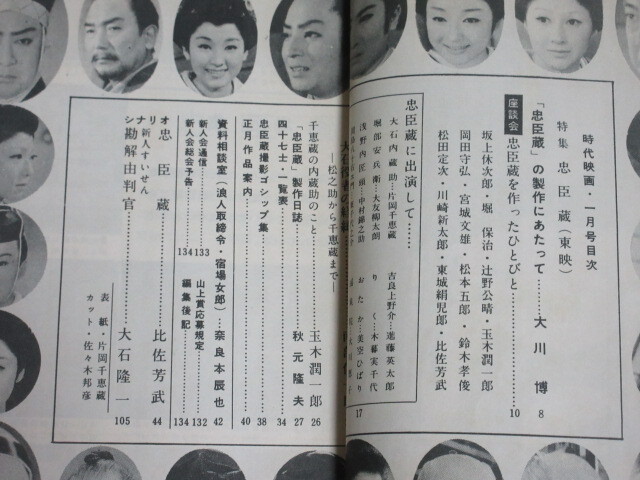 時代映画・一月号目次
特集 忠臣蔵(東映)
「忠臣蔵」の製作にあたって……大川 博 8
座談会 忠臣蔵を作ったひとびと……10
坂上休次郎・堀 保治・辻野公晴・玉木潤一郎
岡田守弘・宮城文雄・松本五郎・鈴木孝俊
松田定次・川崎新太郎・東城絹児郎・比佐芳武
忠臣蔵に出演して……17
大石内蔵助…片岡千恵蔵
堀部安兵衛…大友柳太朗
浅野内匠頭…中村錦之助
吉良上野介…進藤英太郎
りく…木暮実千代
おたか…美空ひばり
千恵蔵の内蔵助のこと
―松之助から千恵蔵まで―……玉木潤一郎 26
「忠臣蔵」製作日誌……秋元隆夫 27
四十七士・一覧表……34
忠臣蔵撮影ゴシップ集……38
正月作品案内……40
資料相談室(浪人取締令・宿場女郎)…奈良本辰也 42
新人会通信……133 山上賞応募規定……132
新人会総会予告……134 編集後記……134
オリ 忠臣蔵……比佐芳武 44
ナシ 新人すいせん 勘解由判官……大石隆一 105
表紙・片岡千恵蔵
カット・佐々木邦彦